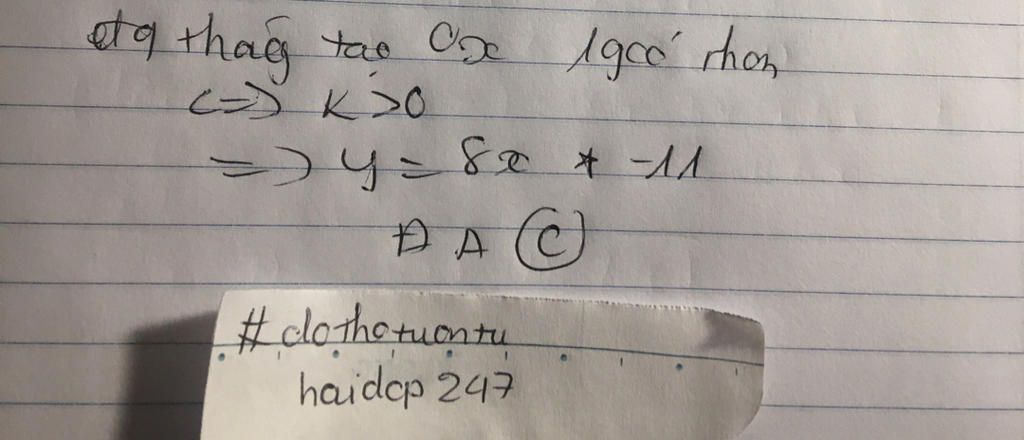 đtg thag̃ tạo Ox 1 góc nhọn
<=> K > 0
=> y = 8x * -11
ĐA C
# dothotuontu
haidcp 247